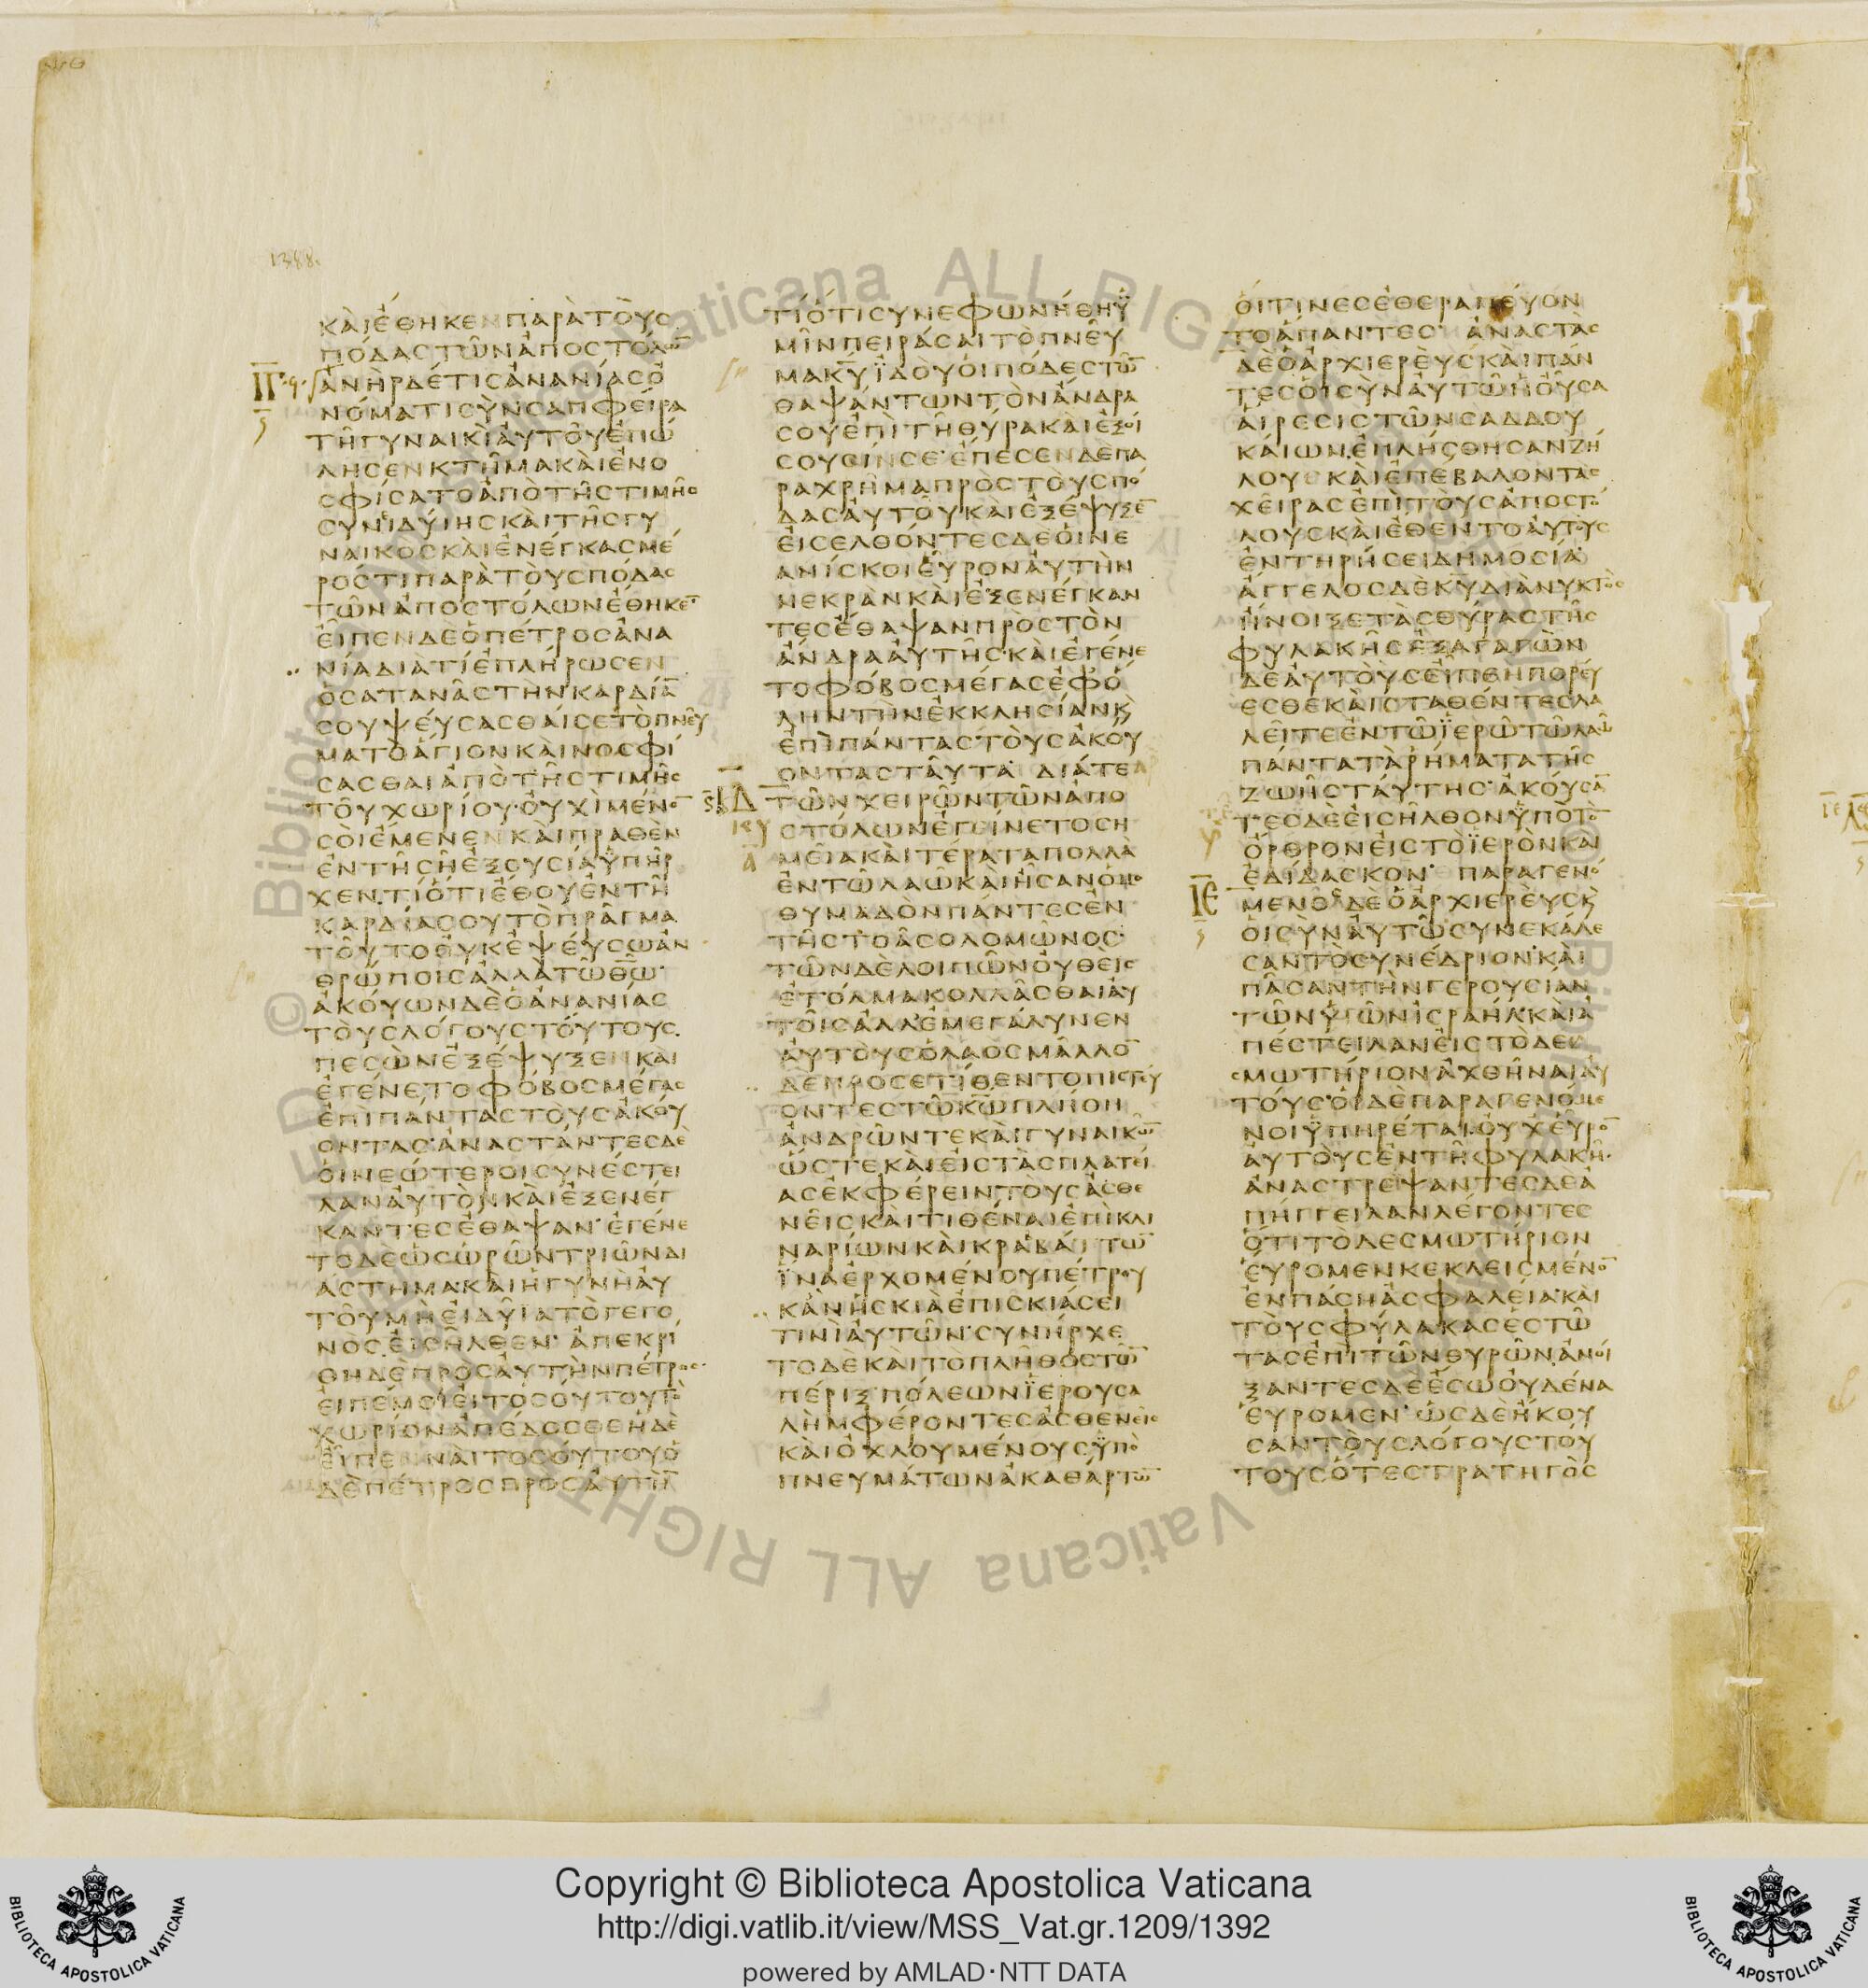 1388.
ΚΑΙΕΘΗΚΕΝΠΑΡΑΤΟΥΣ
ΠΟΔΑΣΤΩΝΑΠΟΣΤΟΛΩ̅
ΑΝΗΡΔΕΤΙΣΑΝΑΝΙΑΣΟ
ΝΟΜΑΤΙΣΥΝΣΑΠΦΕΙΡΑ
ΤΗΓΥΝΑΙΚΙΑΥΤΟΥΕΠΩ
ΛΗΣΕΝΚΤΗΜΑΚΑΙΕΝΟ
ΣΦΙΣΑΤΟΑΠΟΤΗΣΤΙΜΗΣ
ΣΥΝΙΔΥΙΗΣΚΑΙΤΗΣΓΥ
ΝΑΙΚΟΣΚΑΙΕΝΕΓΚΑΣΜΕ
ΡΟΣΤΙΠΑΡΑΤΟΥΣΠΟΔΑΣ
ΤΩΝΑΠΟΣΤΟΛΩΝΕΘΗΚΕ̅
ΕΙΠΕΝΔΕΟΠΕΤΡΟΣΑΝΑ
ΝΙΑΔΙΑΤΙΕΠΛΗΡΩΣΕΝ
ΟΣΑΤΑΝΑΣΤΗΝΚΑΡΔΙΑ̅
ΣΟΥΨΕΥΣΑΣΘΑΙΣΕΤΟΠΝΕΥ
ΜΑΤΟΑΓΙΟΝΚΑΙΝΟΣΦΙ
ΣΑΣΘΑΙΑΠΟΤΗΣΤΙΜΗΣ
ΤΟΥΧΩΡΙΟΥ·ΟΥΧΙΜΕΝΟ̅
ΣΟΙΕΜΕΝΕΝΚΑΙΠΡΑΘΕΝ
ΕΝΤΗΣΗΕΞΟΥΣΙΑΥΠΗΡ
ΧΕΝ·ΤΙΟΤΙΕΘΟΥΕΝΤΗ
ΚΑΡΔΙΑΣΟΥΤΟΠΡΑΓΜΑ
ΤΟΥΤΟΟΥΚΕΨΕΥΣΩΑΝ
ΘΡΩΠΟΙΣΑΛΛΑΤΩΘ̅Ω̅·
ΑΚΟΥΩΝΔΕΟΑΝΑΝΙΑΣ
ΤΟΥΣΛΟΓΟΥΣΤΟΥΤΟΥΣ
ΠΕΣΩΝΕΞΕΨΥΞΕΝΚΑΙ
ΕΓΕΝΕΤΟΦΟΒΟΣΜΕΓΑΣ
ΕΠΙΠΑΝΤΑΣΤΟΥΣΑΚΟΥ
ΟΝΤΑΣ·ΑΝΑΣΤΑΝΤΕΣΔΕ
ΟΙΝΕΩΤΕΡΟΙΣΥΝΕΣΤΕΙ
ΛΑΝΑΥΤΟΝΚΑΙΕΞΕΝΕΓ
ΚΑΝΤΕΣΕΘΑΨΑΝ·ΕΓΕΝΕ
ΤΟΔΕΩΣΩΡΩΝΤΡΙΩΝΔΙ
ΑΣΤΗΜΑΚΑΙΗΓΥΝΗΑΥ
ΤΟΥΜΗΕΙΔΥΙΑΤΟΓΕΓΟ
ΝΟΣΕΙΣΗΛΘΕΝ· ΑΠΕΚΡΙ
ΘΗΔΕΠΡΟΣΑΥΤΗΝΠΕΤΡΟΣ·
ΕΙΠΕΜΟΙΕΙΤΟΣΟΥΤΟΥΤΟ
ΧΩΡΙΟΝΑΠΕΔΟΣΘΕΗΔΕ
ΕΙΠΕΝΝΑΙΤΟΣΟΥΤΟΥΟ
ΔΕΠΕΤΡΟΣΠΡΟΣΑΥΤΗ̅
ΤΙΟΤΙΣΥΝΕΦΩΝΗΘΗΫ
ΜΙΝΠΕΙΡΑΣΑΙΤΟΠΝΕΥ
ΜΑΚ̅Υ̅ΪΔΟΥΟΙΠΟΔΕΣΤΩ̅
ΘΑΨΑΝΤΩΝΤΟΝΑΝΔΡΑ
ΣΟΥΕΠΙΤΗΘΥΡΑΚΑΙΕΞΟΙ
ΣΟΥΣΙΝΣΕ·ΕΠΕΣΕΝΔΕΠΑ
ΡΑΧΡΗΜΑΠΡΟΣΤΟΥΣΠΟ
ΔΑΣΑΥΤΟΥΚΑΙΕΞΕΨΥΞΕ̅
ΕΙΣΕΛΘΟΝΤΕΣΔΕΟΙΝΕ
ΑΝΙΣΚΟΙΕΥΡΟΝΑΥΤΗΝ
ΝΕΚΡΑΝΚΑΙΕΞΕΝΕΓΚΑΝ
ΤΕΣΕΘΑΨΑΝΠΡΟΣΤΟΝ
ΑΝΔΡΑΑΥΤΗΣ·ΚΑΙΕΓΕΝΕ
ΤΟΦΟΒΟΣΜΕΓΑΣΕΦΟ
ΛΗΝΤΗΝΕΚΚΛΗΣΙΑΝΚ
ΕΠΙΠΑΝΤΑΣΤΟΥΣΑΚΟΥ
ΟΝΤΑΣΤΑΥΤΑ· ΔΙΑΤΕ
ΤΩΝΧΕΙΡΩΝΤΩΝΑΠΟ
ΣΤΟΛΩΝΕΓΕΙΝΕΤΟΣΗ
ΜΕΙΑΚΑΙΤΕΡΑΤΑΠΟΛΛΑ
ΕΝΤΩΛΑΩΚΑΙΗΣΑΝΟΜΟ
ΘΥΜΑΔΟΝΠΑΝΤΕΣΕΝ
ΤΗΣΤΟΑΣΟΛΟΜΩΝΟΣ·
ΤΩΝΔΕΛΟΙΠΩΝΟΥΘΕΙΣ
ΕΤΟΛΜΑΚΟΛΛΑΣΘΑΙΑΥ
ΤΟΙΣΑΛΛΕΜΕΓΑΛΥΝΕΝ
ΑΥΤΟΥΣΟΛΑΟΣΜΑΛΛΟ̅
ΔΕΠΡΟΣΕΤΙΘΕΝΤΟΠΙΣΤΕΥ
ΟΝΤΕΣΤΩΚ̅Ω̅ΠΛΗΘΗ
ΑΝΔΡΩΝΤΕΚΑΙΓΥΝΑΙΚΩ̅
ΩΣΤΕΚΑΙΕΙΣΤΑΣΠΛΑΤΕΙ
ΑΣΕΚΦΕΡΕΙΝΤΟΥΣΑΣΘΕ
ΝΕΙΣΚΑΙΤΙΘΕΝΑΙΕΠΙΚΛΙ
ΝΑΡΙΩΝΚΑΙΚΡΑΒΑΤΤΩ̅
ΪΝΑΕΡΧΟΜΕΝΟΥΠΕΤΡΟΥ
ΚΑΝΗΣΚΙΑΕΠΙΣΚΙΑΣΕΙ
ΤΙΝΙΑΥΤΩΝ·ΣΥΝΗΡΧΕ
ΤΟΔΕΚΑΙΤΟΠΛΗΘΟΣΤΩ̅
ΠΕΡΙΞΠΟΛΕΩΝΪΕΡΟΥΣΑ
ΛΗΜΦΕΡΟΝΤΕΣΑΣΘΕΝΕΙΣ
ΚΑΙΟΧΛΟΥΜΕΝΟΥΣΫΠΟ
ΠΝΕΥΜΑΤΩΝΑΚΑΘΑΡΤΩ̅
ΟΙΤΙΝΕΣΕΘΕΡΑΠΕΥΟΝ
ΤΟΑΠΑΝΤΕΣ· ΑΝΑΣΤΑΣ
ΔΕΟΑΡΧΙΕΡΕΥΣΚΑΙΠΑΝ
ΤΕΣΟΙΣΥΝΑΥΤΩΗΟΥΣΑ
ΑΙΡΕΣΙΣΤΩΝΣΑΔΔΟΥ
ΚΑΙΩΝΕΠΛΗΣΘΗΣΑΝΖΗ
ΛΟΥΣΚΑΙΕΠΕΒΑΛΟΝΤΑΣ
ΧΕΙΡΑΣΕΠΙΤΟΥΣΑΠΟΣΤΟ
ΛΟΥΣΚΑΙΕΘΕΝΤΟΑΥΤΟΥΣ
ΕΝΤΗΡΗΣΕΙΔΗΜΟΣΙΑ·
ΑΓΓΕΛΟΣΔΕΚ̅Υ̅ΔΙΑΝΥΚΤΟΣ
ΗΝΟΙΞΕΤΑΣΘΥΡΑΣΤΗΣ
ΦΥΛΑΚΗΣΕΞΑΓΑΓΩΝ
ΔΕΑΥΤΟΥΣΕΙΠΕΝΠΟΡΕΥ
ΕΣΘΕΚΑΙΣΤΑΘΕΝΤΕΣΛΑ
ΛΕΙΤΕΕΝΤΩΪΕΡΩΤΩΛΑΩ
ΠΑΝΤΑΤΑΡΗΜΑΤΑΤΗΣ
ΖΩΗΣΤΑΥΤΗΣ·ΑΚΟΥΣΑ̅
ΤΕΣΔΕΕΙΣΗΛΘΟΝΫΠΟΤΟ̅
ΟΡΘΡΟΝΕΙΣΤΟΪΕΡΟΝΚΑΙ
ΕΔΙΔΑΣΚΟΝ· ΠΑΡΑΓΕΝΟ
ΜΕΝΟΣΔΕΟΑΡΧΙΕΡΕΥΣΚ
ΟΙΣΥΝΑΥΤΩΣΥΝΕΚΑΛΕ
ΣΑΝΤΟΣΥΝΕΔΡΙΟΝΚΑΙ
ΠΑΣΑΝΤΗΝΓΕΡΟΥΣΙΑΝ
ΤΩΝΥΙΩΝΙΣΡΑΗΛΚΑΙΑ
ΠΕΣΤΕΙΛΑΝΕΙΣΤΟΔΕ
ΣΜΩΤΗΡΙΟΝΑΧΘΗΝΑΙΑΥ
ΤΟΥΣ·ΟΙΔΕΠΑΡΑΓΕΝΟΜΕ
ΝΟΙΫΠΗΡΕΤΑΙΟΥΧΕΥΡΟ̅
ΑΥΤΟΥΣΕΝΤΗΦΥΛΑΚΗ·
ΑΝΑΣΤΡΕΨΑΝΤΕΣΔΕΑ
ΠΗΓΓΕΙΛΑΝΛΕΓΟΝΤΕΣ
ΟΤΙΤΟΔΕΣΜΩΤΗΡΙΟΝ
ΕΥΡΟΜΕΝΚΕΚΛΕΙΣΜΕΝΟ̅
ΕΝΠΑΣΗΑΣΦΑΛΕΙΑΚΑΙ
ΤΟΥΣΦΥΛΑΚΑΣΕΣΤΩ
ΤΑΣΕΠΙΤΩΝΘΥΡΩΝΑΝΟΙ
ΞΑΝΤΕΣΔΕΕΣΩΟΥΔΕΝΑ
ΕΥΡΟΜΕΝ· ΩΣΔΕΗΚΟΥ
ΣΑΝΤΟΥΣΛΟΓΟΥΣΤΟΥ
ΤΟΥΣΟΤΕΣΤΡΑΤΗΓΟΣ
Copyright © Biblioteca Apostolica Vaticana
http://digi.vatlib.it/view/MSS_Vat.gr.1209/1392
powered by AMLAD·NTT DATA
BIBLIOTECA APOSTOLICA VATICANA
BIBLIOTECA APOSTOLICA VATICANA